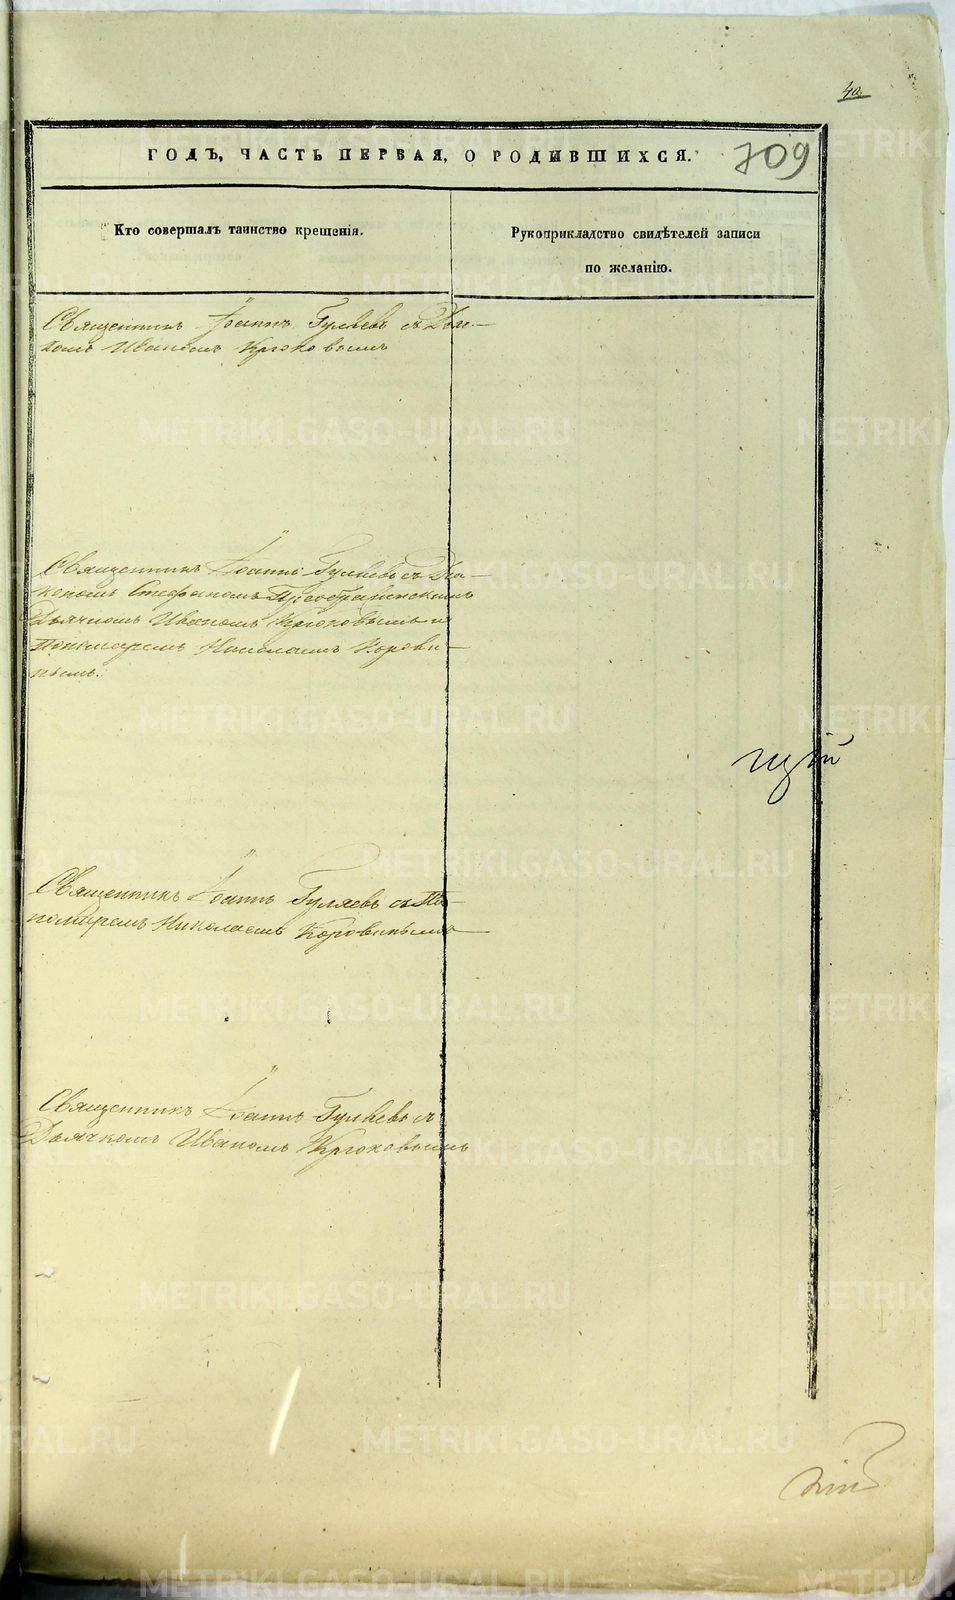 40
ГОДЪ, ЧАСТЬ ПЕРВАЯ, О РОДИВШИХСЯ. 709
Кто совершалъ таинство крещенія.
Рукоприкладство свидѣтелей записи
по желанію.
Священникъ Іоаннъ Гуляевъ съ Дьяч-
комъ Иваномъ Крюковымъ
Священникъ Іоаннъ Гуляевъ съ Діа-
кономъ Стефаномъ Преображенскимъ
Дьячкомъ Иваномъ Крюковымъ и
Пономаремъ Николаемъ Корови-
нымъ.
Священникъ Іоаннъ Гуляевъ съ По-
номаремъ Николаемъ Коровинымъ
Священникъ Іоаннъ Гуляевъ съ
Дьячкомъ Иваномъ Крюковымъ
METRIKI.GASO-URAL.RU